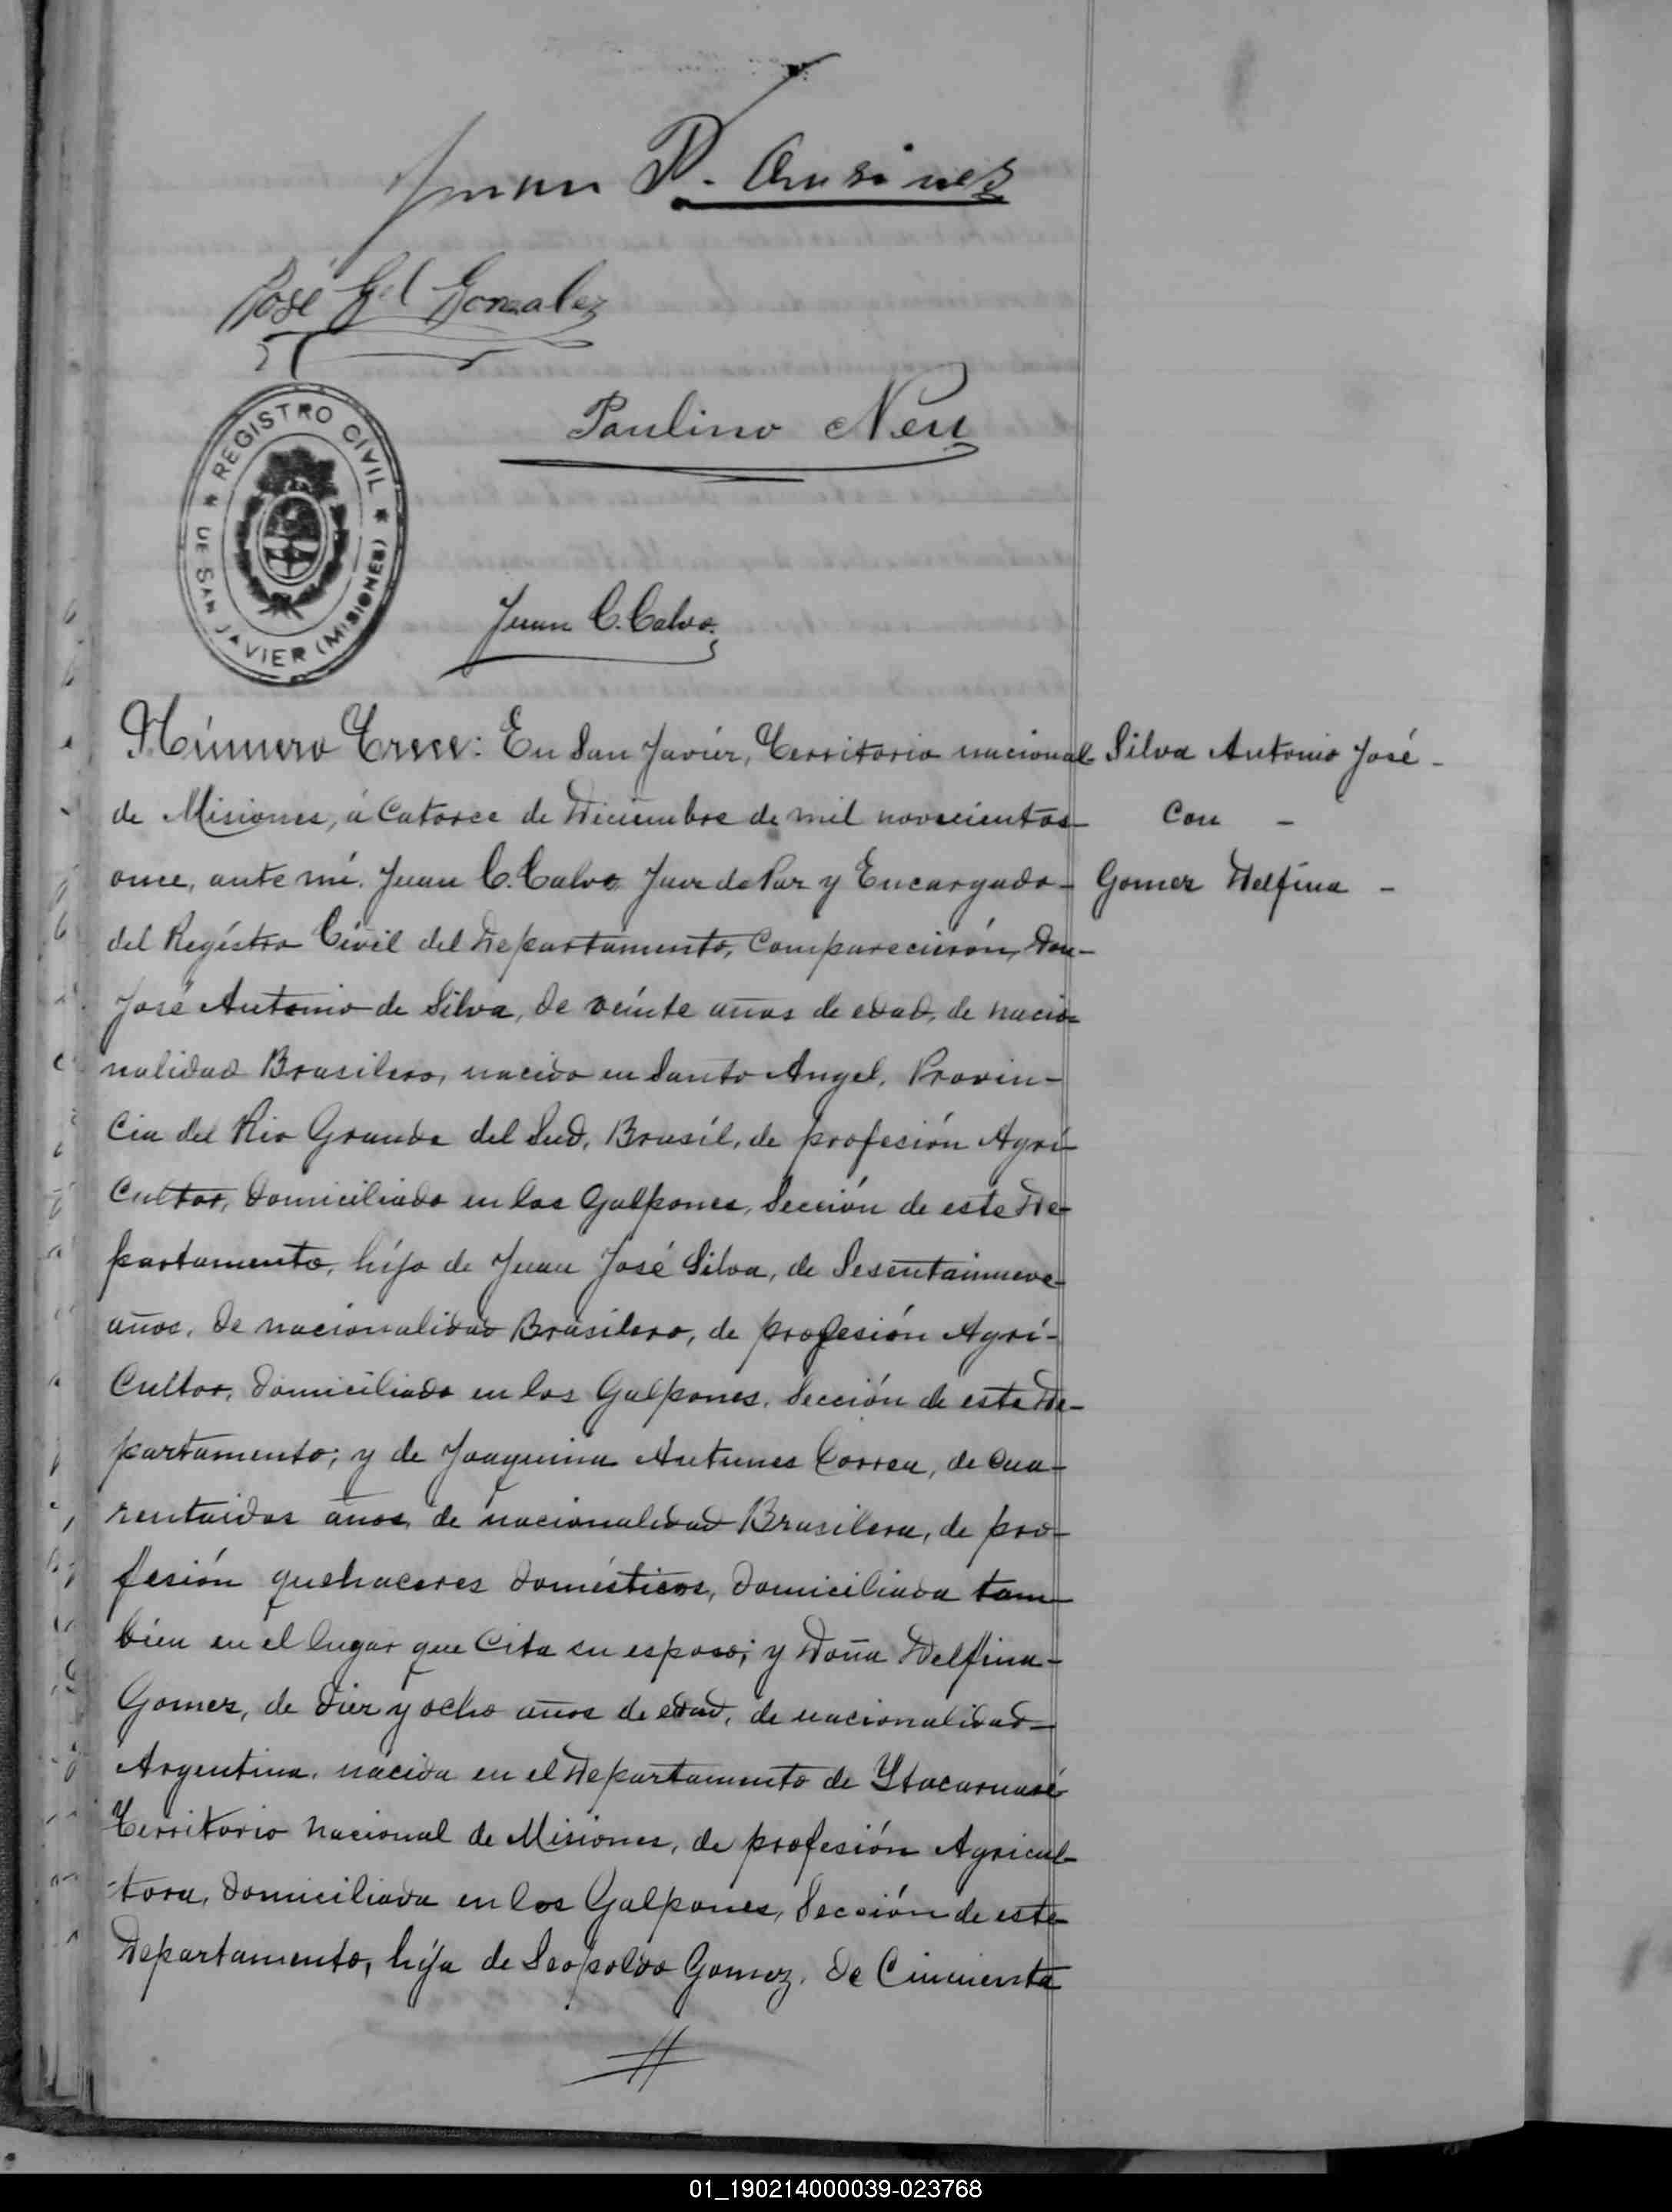 Juan P.
José Gel Gonzalez
Paulino Neu
* REGISTRO CIVIL *
DE SAN JAVIER (MISIONES)
Juan C. Calvo.
Número Trece: En San Javier, Territorio nacional
de Misiones, á Catorce de Diciembre de mil novecientos
once, ante mí. Juan C. Calvo Juez de Paz y Encargado-
del Regístro Civil del Departamento, Comparecieron, Don-
José Antonio de Silva, de veínte años de edad, de nacio-
nalidad Brasilero, nacido en Santo Angel, Provin-
cia del Rio Grande del Sud, Brasíl, de profesión Agrí-
cultor, domiciliado en los Galpones, Sección de este De-
partamento, hijo de Juan José Silva, de Sesentainueve-
años, de nacionalidad Brasilero, de profesión Agrí-
cultor, domiciliado en los Galpones, Sección de este De-
partamento; y de Joaquina Antunes Correa, de cua-
rentaidos años, de nacionalidad Brasilera, de pro-
fesión quehaceres domésticos, domiciliada tam-
bien en el lugar que cita su esposo; y Doña Delfina-
Gomez, de diez y ocho años de edad, de nacionalidad-
Argentina, nacida en el Departamento de Ytacaruaré
Territorio nacional de Misiones, de profesión Agricul-
tora, domiciliada en los Galpones, Sección de este
Departamento, hija de Leopoldo Gomez, de Cincuenta
Silva Antonio José-
Con -
Gomez Delfina -
01_190214000039-023768